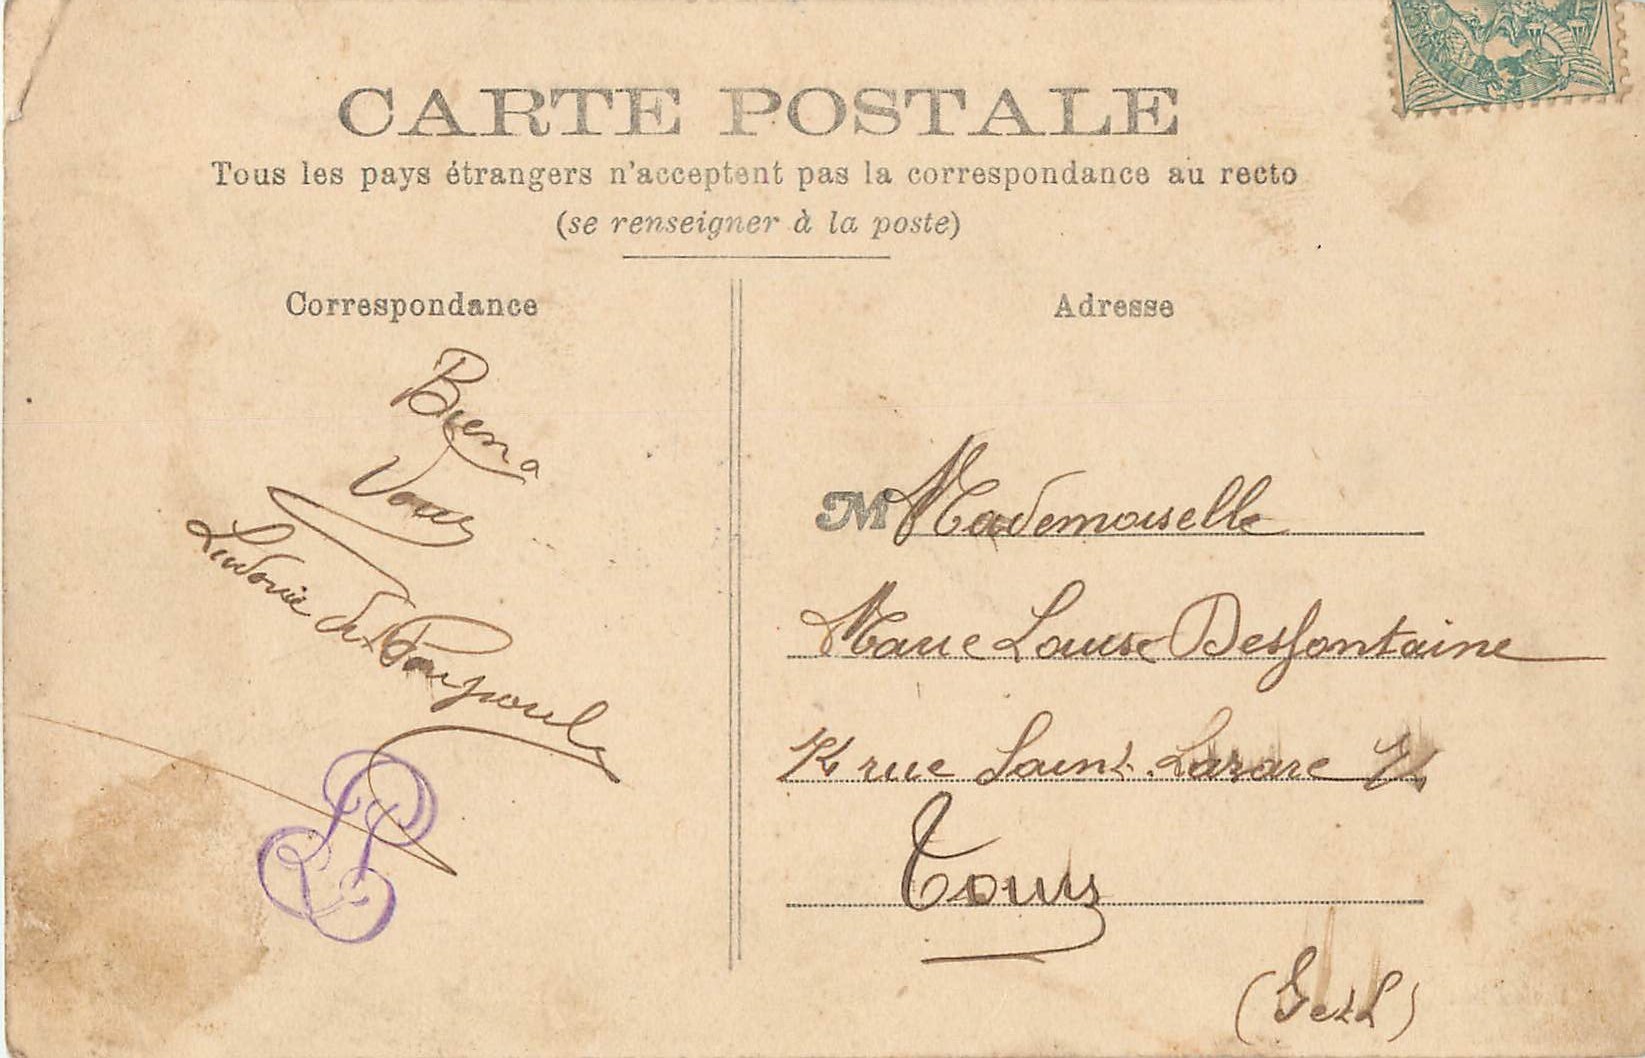 CARTE POSTALE
Tous les pays étrangers n'acceptent pas la correspondance au recto
(se renseigner à la poste)
Correspondance
Bien à
Vous
Ludovic de
Adresse
M Mademoiselle
Marie Louise Desfontaine
rue Saint. Lazare
Tours
(I et L)